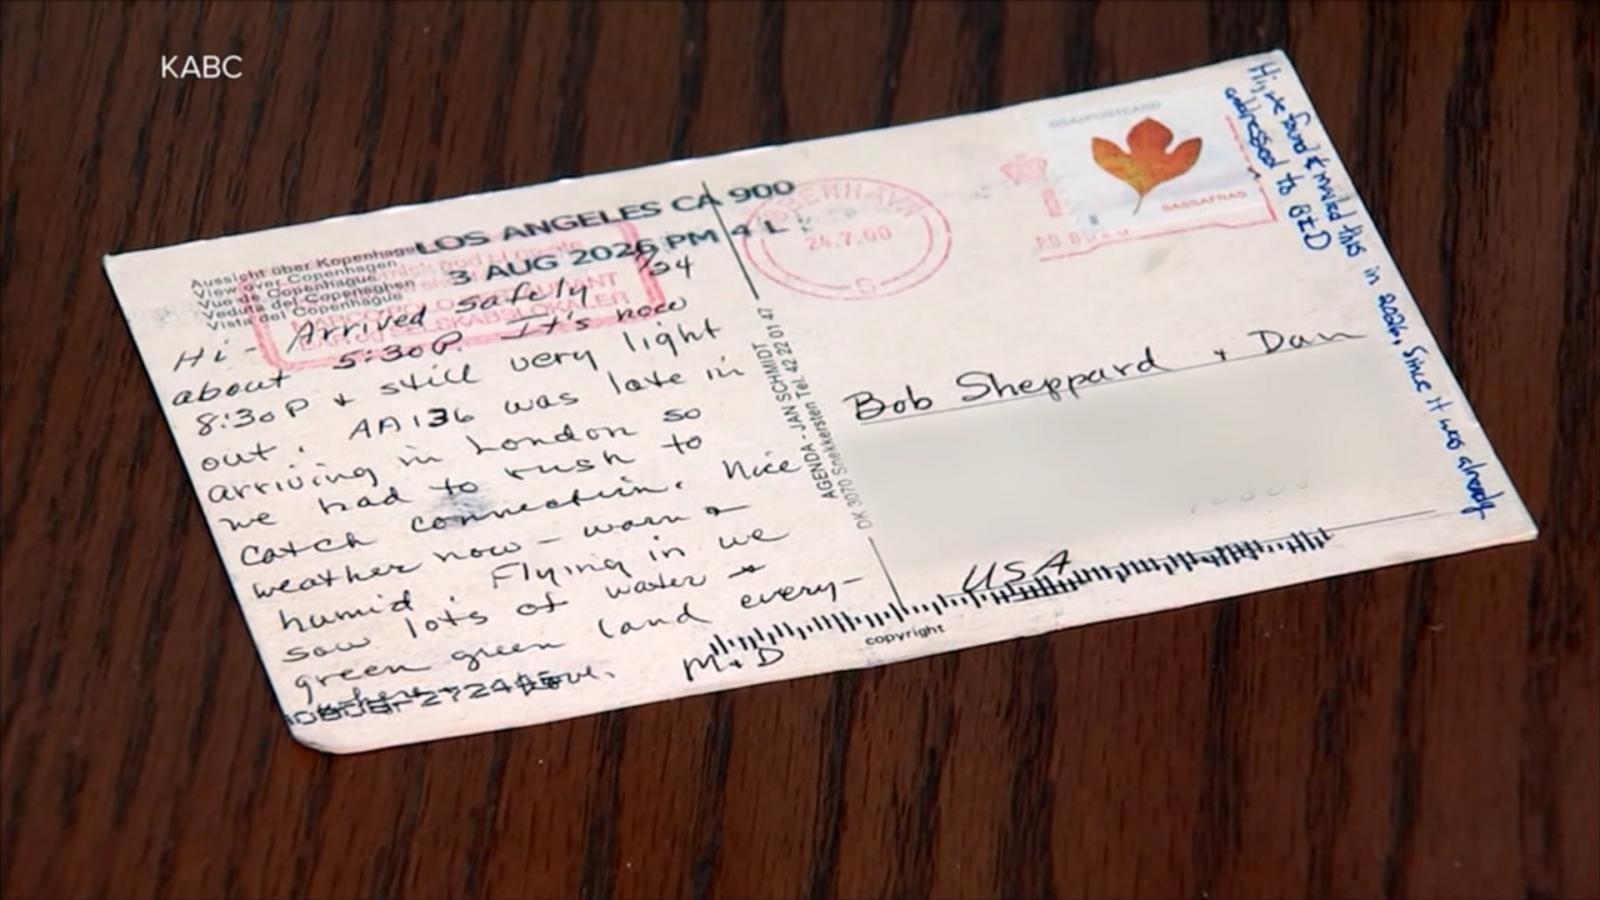 KABC
LOS ANGELES CA 900
3 AUG 2026 PM 4 L
Aussicht über Kopenhagen
View over Copenhagen
Vue de Copenhague
Veduta del Copenaghen
Vista del Copenhague
7/24
Hi - Arrived safely
about 5:30P. It's now
8:30P + still very light
out. AA136 was late in
arriving in London so
we had to rush to
catch connection. Nice
weather now - warm &
humid. Flying in we
saw lots of water &
green green land every-
where. Love,
M + D
AGENDA - JAN SCHMIDT
DK 3070 Snekkersten Tel. 42 22 01 47
copyright
KØBENHAVN
24.7.00
USA/POSTCARD
SASSAFRAS
Bob Sheppard + Dan
USA
Hi, we found & mailed this in 2026, since it was already
addressed to BED